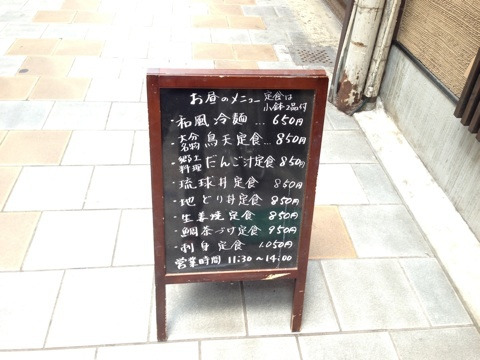 お昼のメニュー 定食は小鉢2品付
・和風冷麺 … 650円
・大分名物 鳥天定食… 850円
・郷土料理 だんご汁定食 850円
・琉球丼定食 850円
・地どり丼定食 850円
・生姜焼定食 850円
・鯛茶づけ定食 950円
・刺身定食 1,050円
営業時間 11:30~14:00